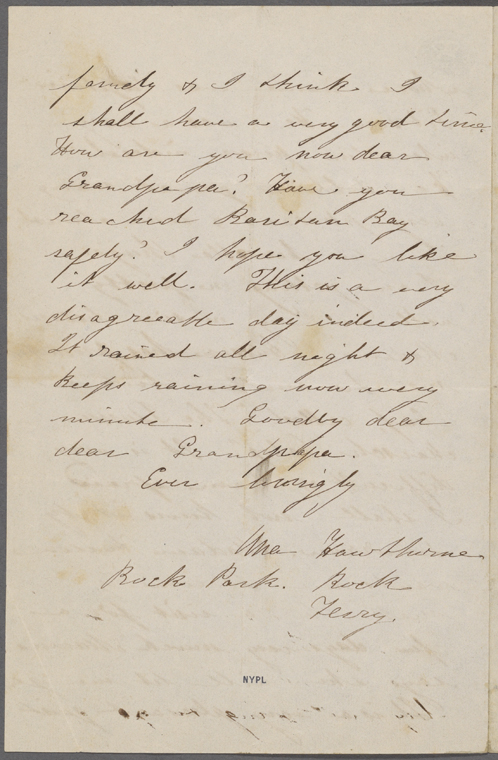 family & I think I
shall have a very good time.
How are you now dear
Grandpapa? Have you
reached Raritan Bay
safely? I hope you like
it well. This is a very
disagreeable day indeed.
It rained all night &
keeps raining now every
minute. Goodby dear
dear Grandpapa.
Ever lovingly
Una Hawthorne
Rock Park. Rock
Ferry.
NYPL